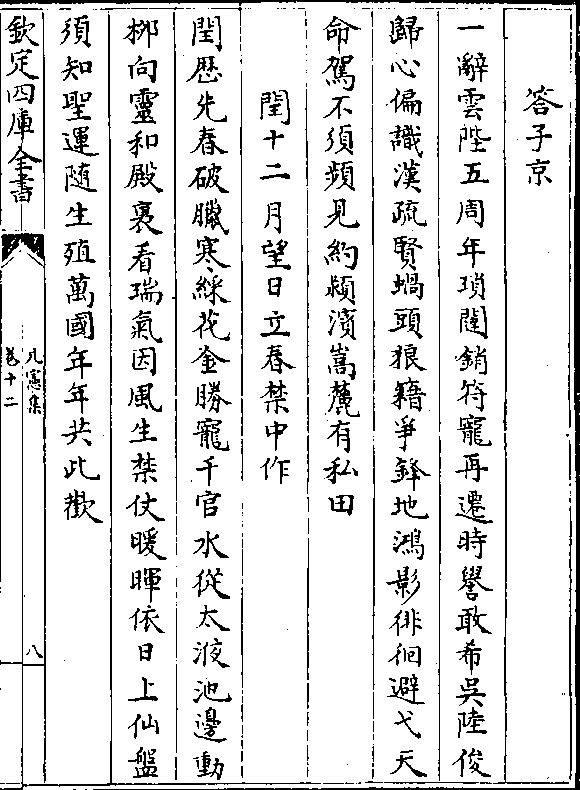 答子京
一辭雲陛五周年瑣闥銷符寵再遷時譽敢希吳陸俊
歸心偏識漢疏賢蝸頭狼籍爭鋒地鴻影徘徊避弋天
命駕不須頻見約潁濱嵩麓有私田
閏十二月望日立春禁中作
閏歴先春破臘寒綵花金勝寵千官水從太液池邊動
栁向靈和殿裏看瑞氣因風生禁仗暖暉依日上仙盤
須知聖運随生殖萬國年年共此歡
欽定四庫全書
元憲集
卷十二
八